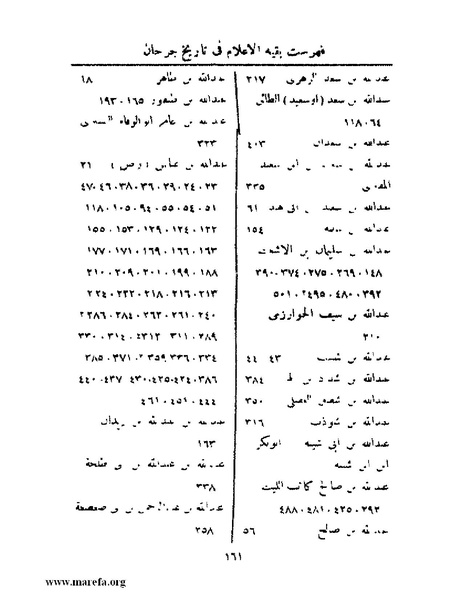 فهرست بقيه الاعلام فى تاريخ جرجان
عبدالله بن سعد الزهرى ٢١٧
عبدالله بن سعد (اوسعيد) الطائى
٦٤،١١٨
عبدالله بن سعدان ٤٠٣
عبدالله بن ابى سعيد
٣٣٥
عبدالله بن سعيد بن ابى هند ٦١
عبدالله بن ١٥٤
عبدالله بن سليمان بن الاشعث
١٤٨،٢٦٩،٢٧٥،٣٧٤،٣٩٠
٣٩٢،٤٨٠،٤٩٥،٥٠١
عبدالله بن سيف الخوارزمى
٣١٠
عبدالله بن شبيب ٤٣ ٤٤
عبدالله بن شداد بن ٣٨٤
عبدالله بن ٣٥٠
عبدالله بن شوذب ٣١٦
عبدالله بن ابى شيبة ابوبكر
ابن ابى شيبة
عبدالله بن صالح كاتب الليث
٢٩٢،٤٢٥،٤٨١،٤٨٨
عبدالله بن صالح ٥٦
عبدالله بن طاهر ١٨
عبدالله بن ١٦٥،١٩٣
عبدالله بن عامر ابوالوفاء
٣٢٣
عبدالله بن عباس (رض) ٢١
٢٣،٢٤،٣٩،٣٦،٣٨،٤٦،٤٧
٥١،٥٤،٥٥،٩٤،١٠٥،١١٨
١٢٢،١٢٤،١٢٩،١٥٣،١٥٥
١٦٣،١٦٦،١٦٩،١٧١،١٧٧
١٨٨،١٩٩،٢٠١،٢٠٩،٢١٠
٢١٣،٢١٦،٢١٨،٢٣٢،٢٢٤
٢٤٠،٢٦١،٢٦٢،٢٨٤،٢٨٦
٢٨٩،٣١١،٣١٢،٣١٤،٣٣٠
٣٣٤،٣٣٦،٣٥٩،٣٧١،٣٨٥
٣٨٦،٤٢٤،٤٢٥،٤٣٠،٤٣٧،٤٤٠
٤٤٤،٤٥١،٤٦١
عبدالله بن عبدالله بن
١٦٣
عبدالله بن عبدالله بن ابى طلحة
٣٣٨
عبدالله بن عبدالرحمن بن ابى صعصعة
٢٥٨
١٦١
www.marefa.org